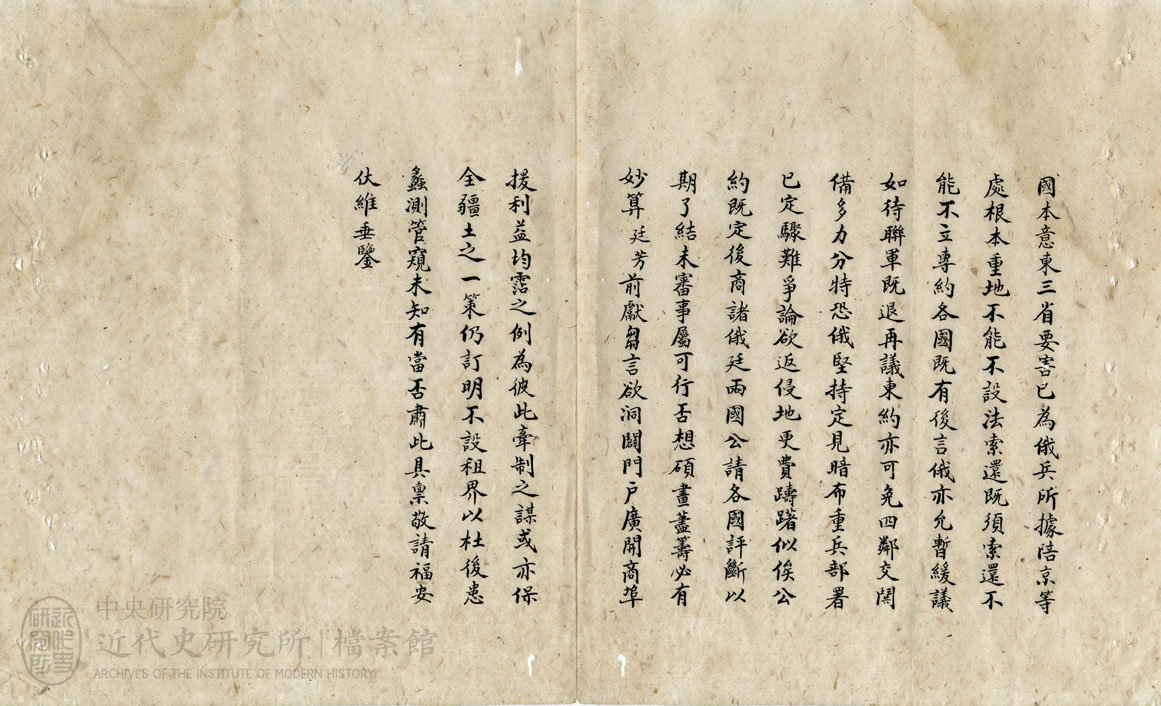 國本意東三省要害已為俄兵所據陪京等
處根本重地不能不設法索還既須索還不
能不立專約各國既有後言俄亦允暫緩議
如待聯軍既退再議東約亦可免四鄰交鬨
備多力分特恐俄堅持定見暗布重兵部署
已定驟難爭論欲返侵地更費躊躇似俟公
約既定後商諸俄廷兩國公請各國評斷以
期了結未審事屬可行否想碩畫藎籌必有
妙算廷芳前獻芻言欲洞闢門戶廣開商埠
援利益均霑之例為彼此牽制之謀或亦保
全疆土之一策仍訂明不設租界以杜後患
蠡測管窺未知有當否肅此具稟敬請福安
伏維垂鑒
中央研究院
近代史研究所|檔案館
ARCHIVES OF THE INSTITUTE OF MODERN HISTORY